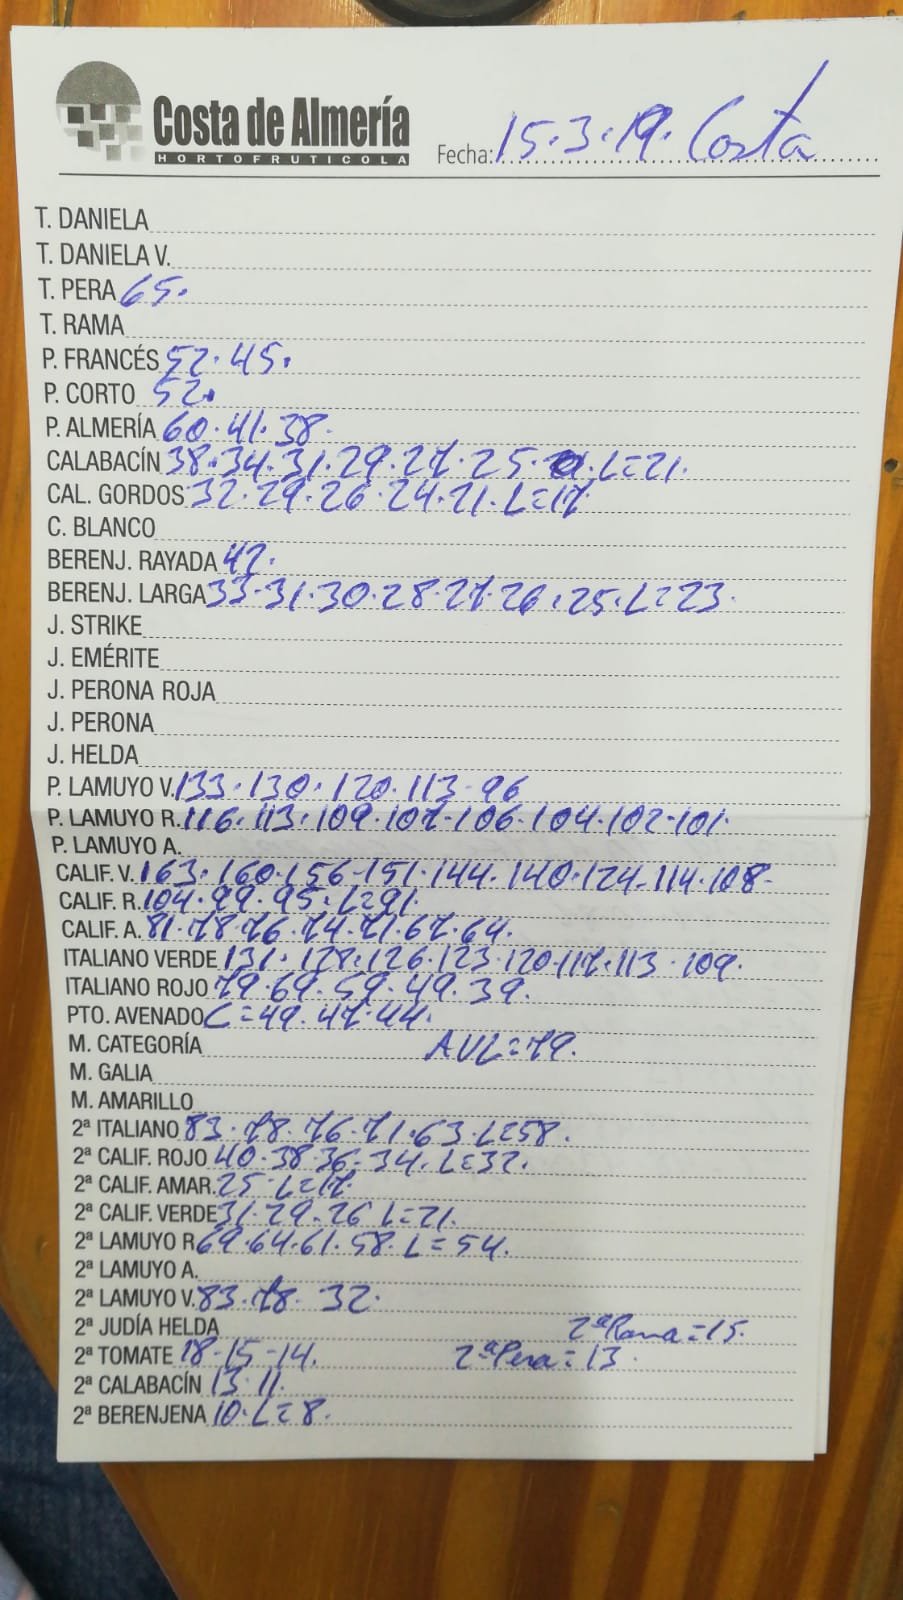 Costa de Almería
HORTOFRUTICOLA
Fecha: 15.3.19. Costa
T. DANIELA
T. DANIELA V.
T. PERA 65.
T. RAMA
P. FRANCÉS 52. 45.
P. CORTO 52.
P. ALMERÍA 60. 41. 38.
CALABACÍN 38. 34. 31. 29. 27. 25. L=21.
CAL. GORDOS 32. 29. 26. 24. 21. L=17
C. BLANCO
BERENJ. RAYADA 42.
BERENJ. LARGA 33. 31. 30. 28. 27. 26. 25. L=23.
J. STRIKE
J. EMÉRITE
J. PERONA ROJA
J. PERONA
J. HELDA
P. LAMUYO V. 133. 130. 120. 113. 96
P. LAMUYO R. 116. 113. 109. 107. 106. 104. 102. 101.
P. LAMUYO A.
CALIF. V. 163. 160. 156. 151. 144. 140. 124. 114. 108.
CALIF. R. 104. 99. 95. L=91.
CALIF. A. 81. 78. 76. 74. 71. 67. 64.
ITALIANO VERDE 131. 128. 126. 123. 120. 117. 113. 109.
ITALIANO ROJO 79. 69. 59. 49. 39.
PTO. AVENADO C=49. 47. 44.
M. CATEGORÍA AVL=79.
M. GALIA
M. AMARILLO
2ª ITALIANO 83. 78. 76. 71. 63. L=58.
2ª CALIF. ROJO 40. 38. 36. 34. L=32.
2ª CALIF. AMAR. 25. L=17.
2ª CALIF. VERDE 31. 29. 26 L=21.
2ª LAMUYO R 69. 64. 61. 58. L=54.
2ª LAMUYO A.
2ª LAMUYO V. 83. 78. 32.
2ª JUDÍA HELDA 2ª Rama=15.
2ª TOMATE 18-15-14. 2ª Pera=13.
2ª CALABACÍN 13. 11.
2ª BERENJENA 10. L=8.